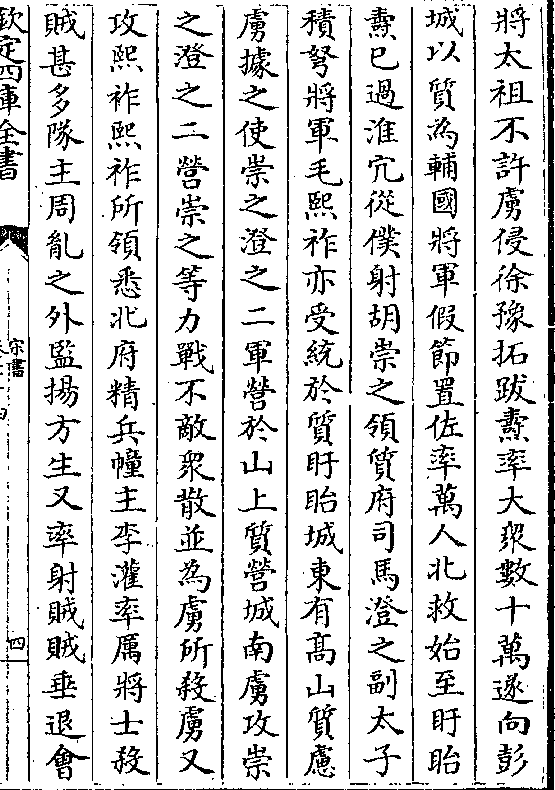 將太祖不許虜侵徐豫拓跋燾率大衆數十萬遂向彭
城以質為輔國將軍假節置佐率萬人北救始至盱眙
燾已過淮宂從僕射胡崇之領質府司馬澄之副太子
積弩將軍毛熙祚亦受統於質盱眙城東有高山質慮
虜據之使崇之澄之二軍營於山上質營城南虜攻崇
之澄之二營崇之等力戰不敵衆散並為虜所殺虜又
攻熙祚熙祚所領悉北府精兵幢主李灌率厲將士殺
賊甚多隊主周胤之外監揚方生又率射賊賊垂退會
欽定四庫全書
宋書
四